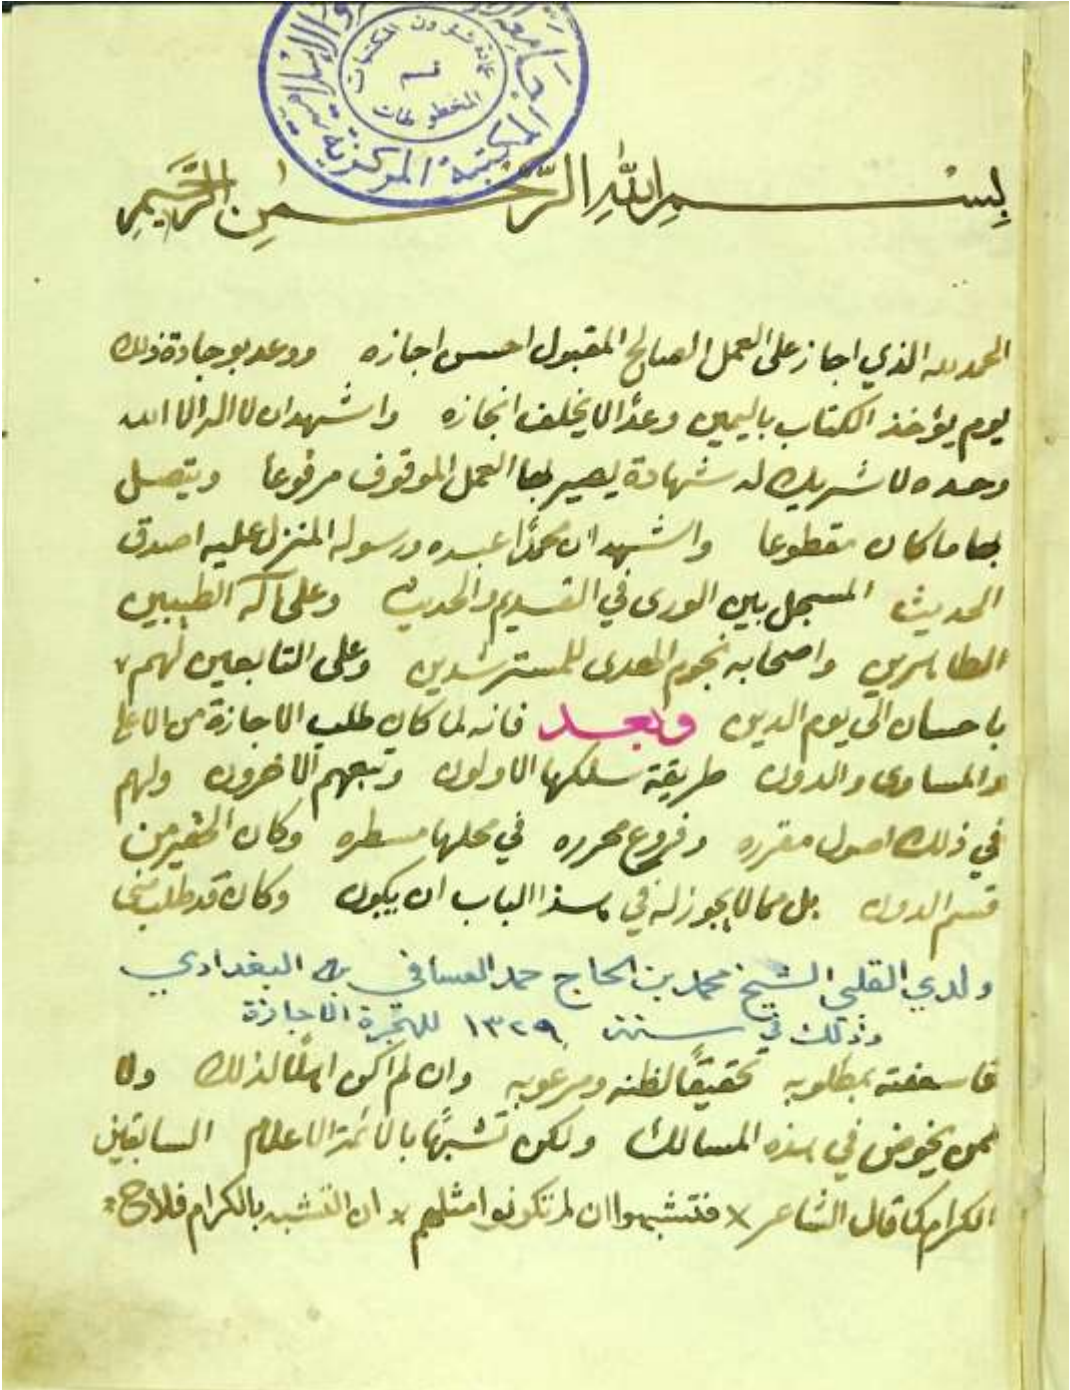 المكتبة المركزية
عمادة شؤون المكتبات
قسم
المخطوطات
بِسْمِ اللهِ الرَّحْمٰنِ الرَّحِيمِ
الحمد لله الذي اجاز على العمل الصالح المقبول احسن اجازه ووعد بوجادة ذلك
يوم يؤخذ الكتاب باليمين وعدًا لا يخلف انجازه واشهد ان لا اله الا الله
وحده لا شريك له شهادة يصير بها العمل الموقوف مرفوعا ويتصل
بها ما كان مقطوعا واشهد ان محمدًا عبده ورسوله المنزل عليه اصدق
الحديث المسجل بين الورى في القديم والحديث وعلى آله الطيبين
الطاهرين واصحابه نجوم الهدى للمسترشدين وعلى التابعين لهم
باحسان الى يوم الدين وبعد فانه لما كان طلب الاجازة من الاعلى
والمساوى والدون طريقة سلكها الاولون وتبعهم الآخرون ولهم
في ذلك اصول مقرره وفروع محرره في محلها مسطره وكان الحقير من
قسم الدون بل مما لا يجوز له في هذا الباب ان يكون وكان قد طلب مني
ولدي القلبي الشيخ محمد بن الحاج حمد العسافي البغدادي
وذلك في سنة ١٣٢٩ للهجرة الاجازة
فاسعفته بمطلوبه تحقيقًا لظنه ومرغوبه وان لم اكن اهلًا لذلك ولا
ممن يخوض في هذه المسالك ولكن تشبهًا بالائمة الاعلام السابقين
الكرام كما قال الشاعر × فتشبهوا ان لم تكونوا مثلهم × ان التشبه بالكرام فلاح